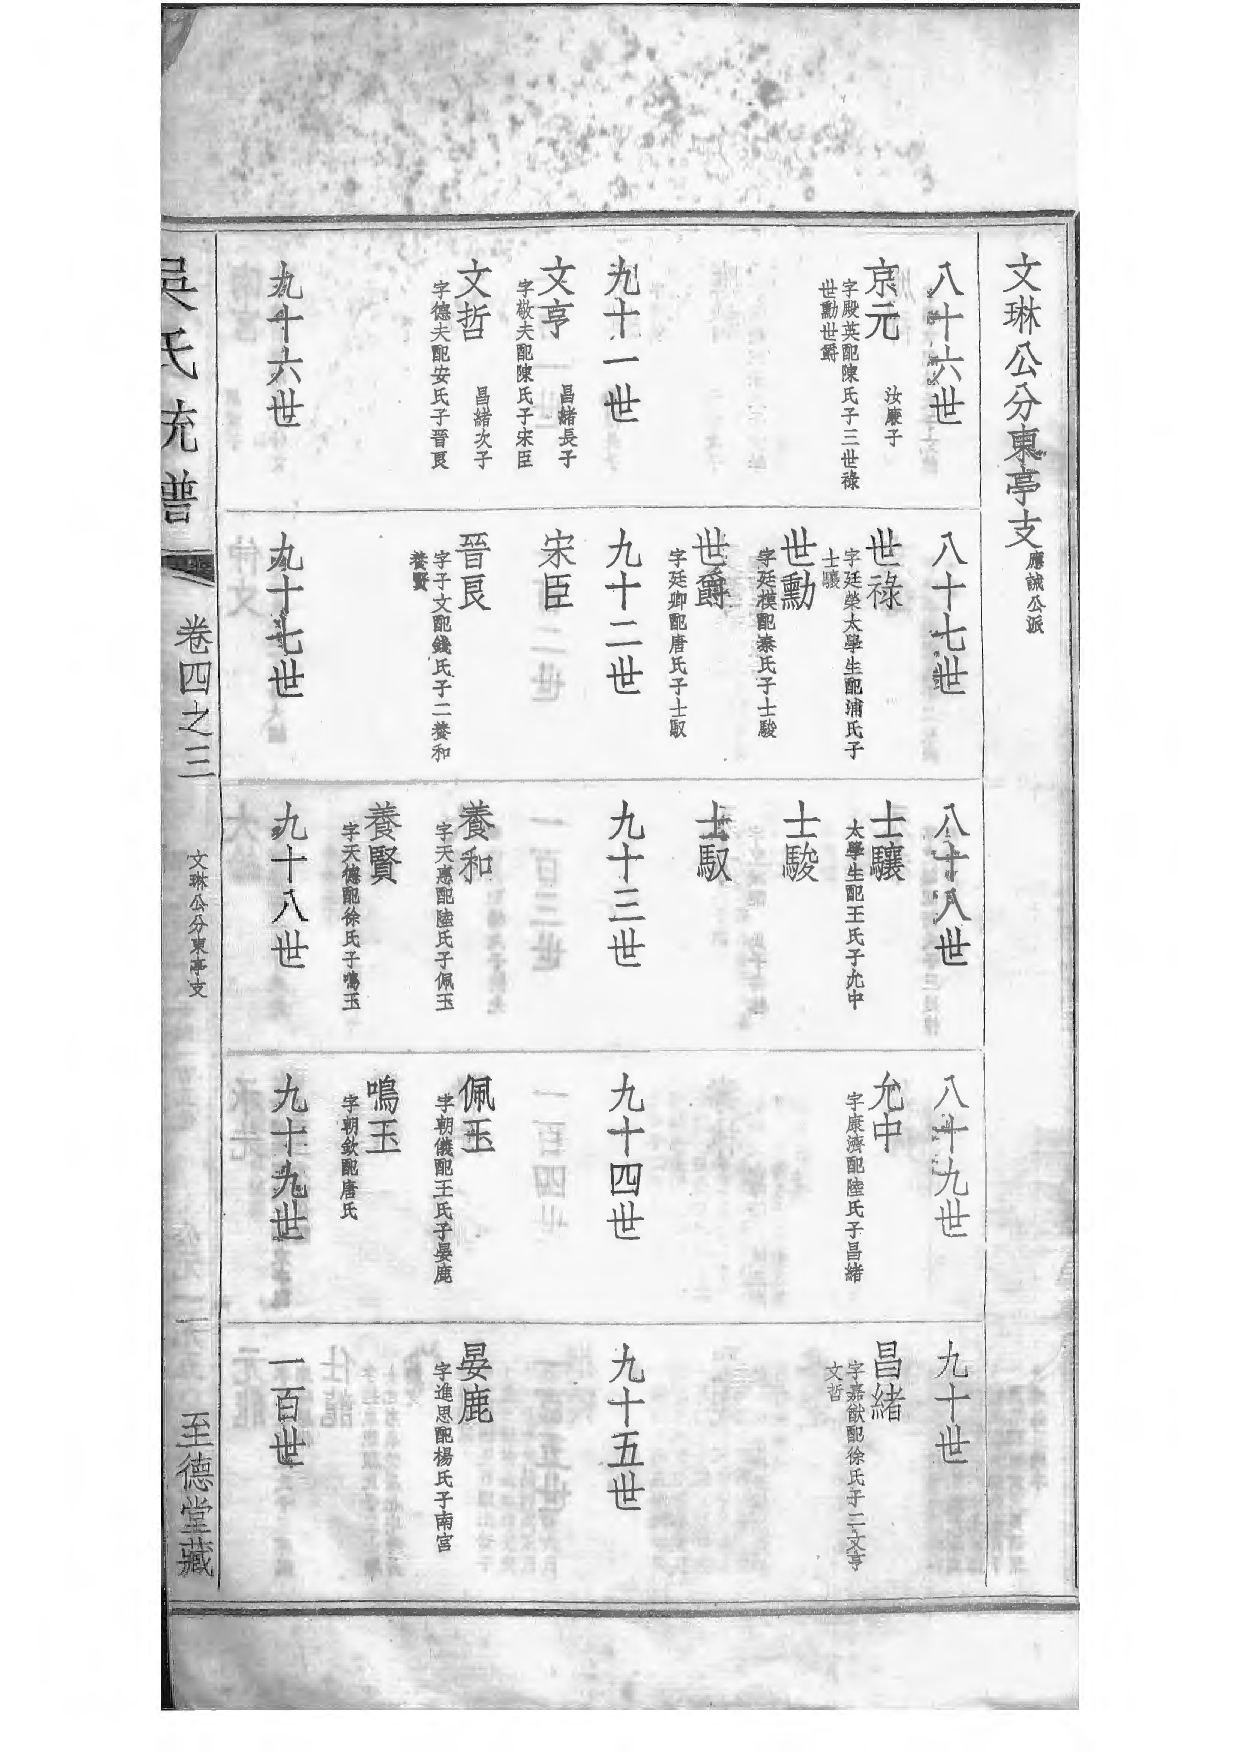 文琳公分東亭支
應誠公派
八十六世
京元
汝廉子
字殿英配陳氏子三世祿
世勳世爵
九十一世
文亨
昌緒長子
字敬夫配陳氏子宋臣
文哲
昌緒次子
字德夫配安氏子晉良
九十六世
八十七世
世祿
字廷榮太學生配浦氏子
士驤
世勳
字廷模配秦氏子士駿
世爵
字廷卿配唐氏子士馭
九十二世
宋臣
晉良
字子文配錢氏子二養和
養賢
九十七世
八十八世
士驤
太學生配王氏子允中
士駿
士馭
九十三世
養和
字天惠配陸氏子佩玉
養賢
字天德配徐氏子鳴玉
九十八世
八十九世
允中
字康濟配陸氏子昌緒
九十四世
佩玉
字朝儀配王氏子晏鹿
鳴玉
字朝欽配唐氏
九十九世
九十世
昌緒
字嘉猷配徐氏子二文亨
文哲
九十五世
晏鹿
字進思配楊氏子南宮
一百世
吳氏統譜
卷四之三
文琳公分東亭支
至德堂藏